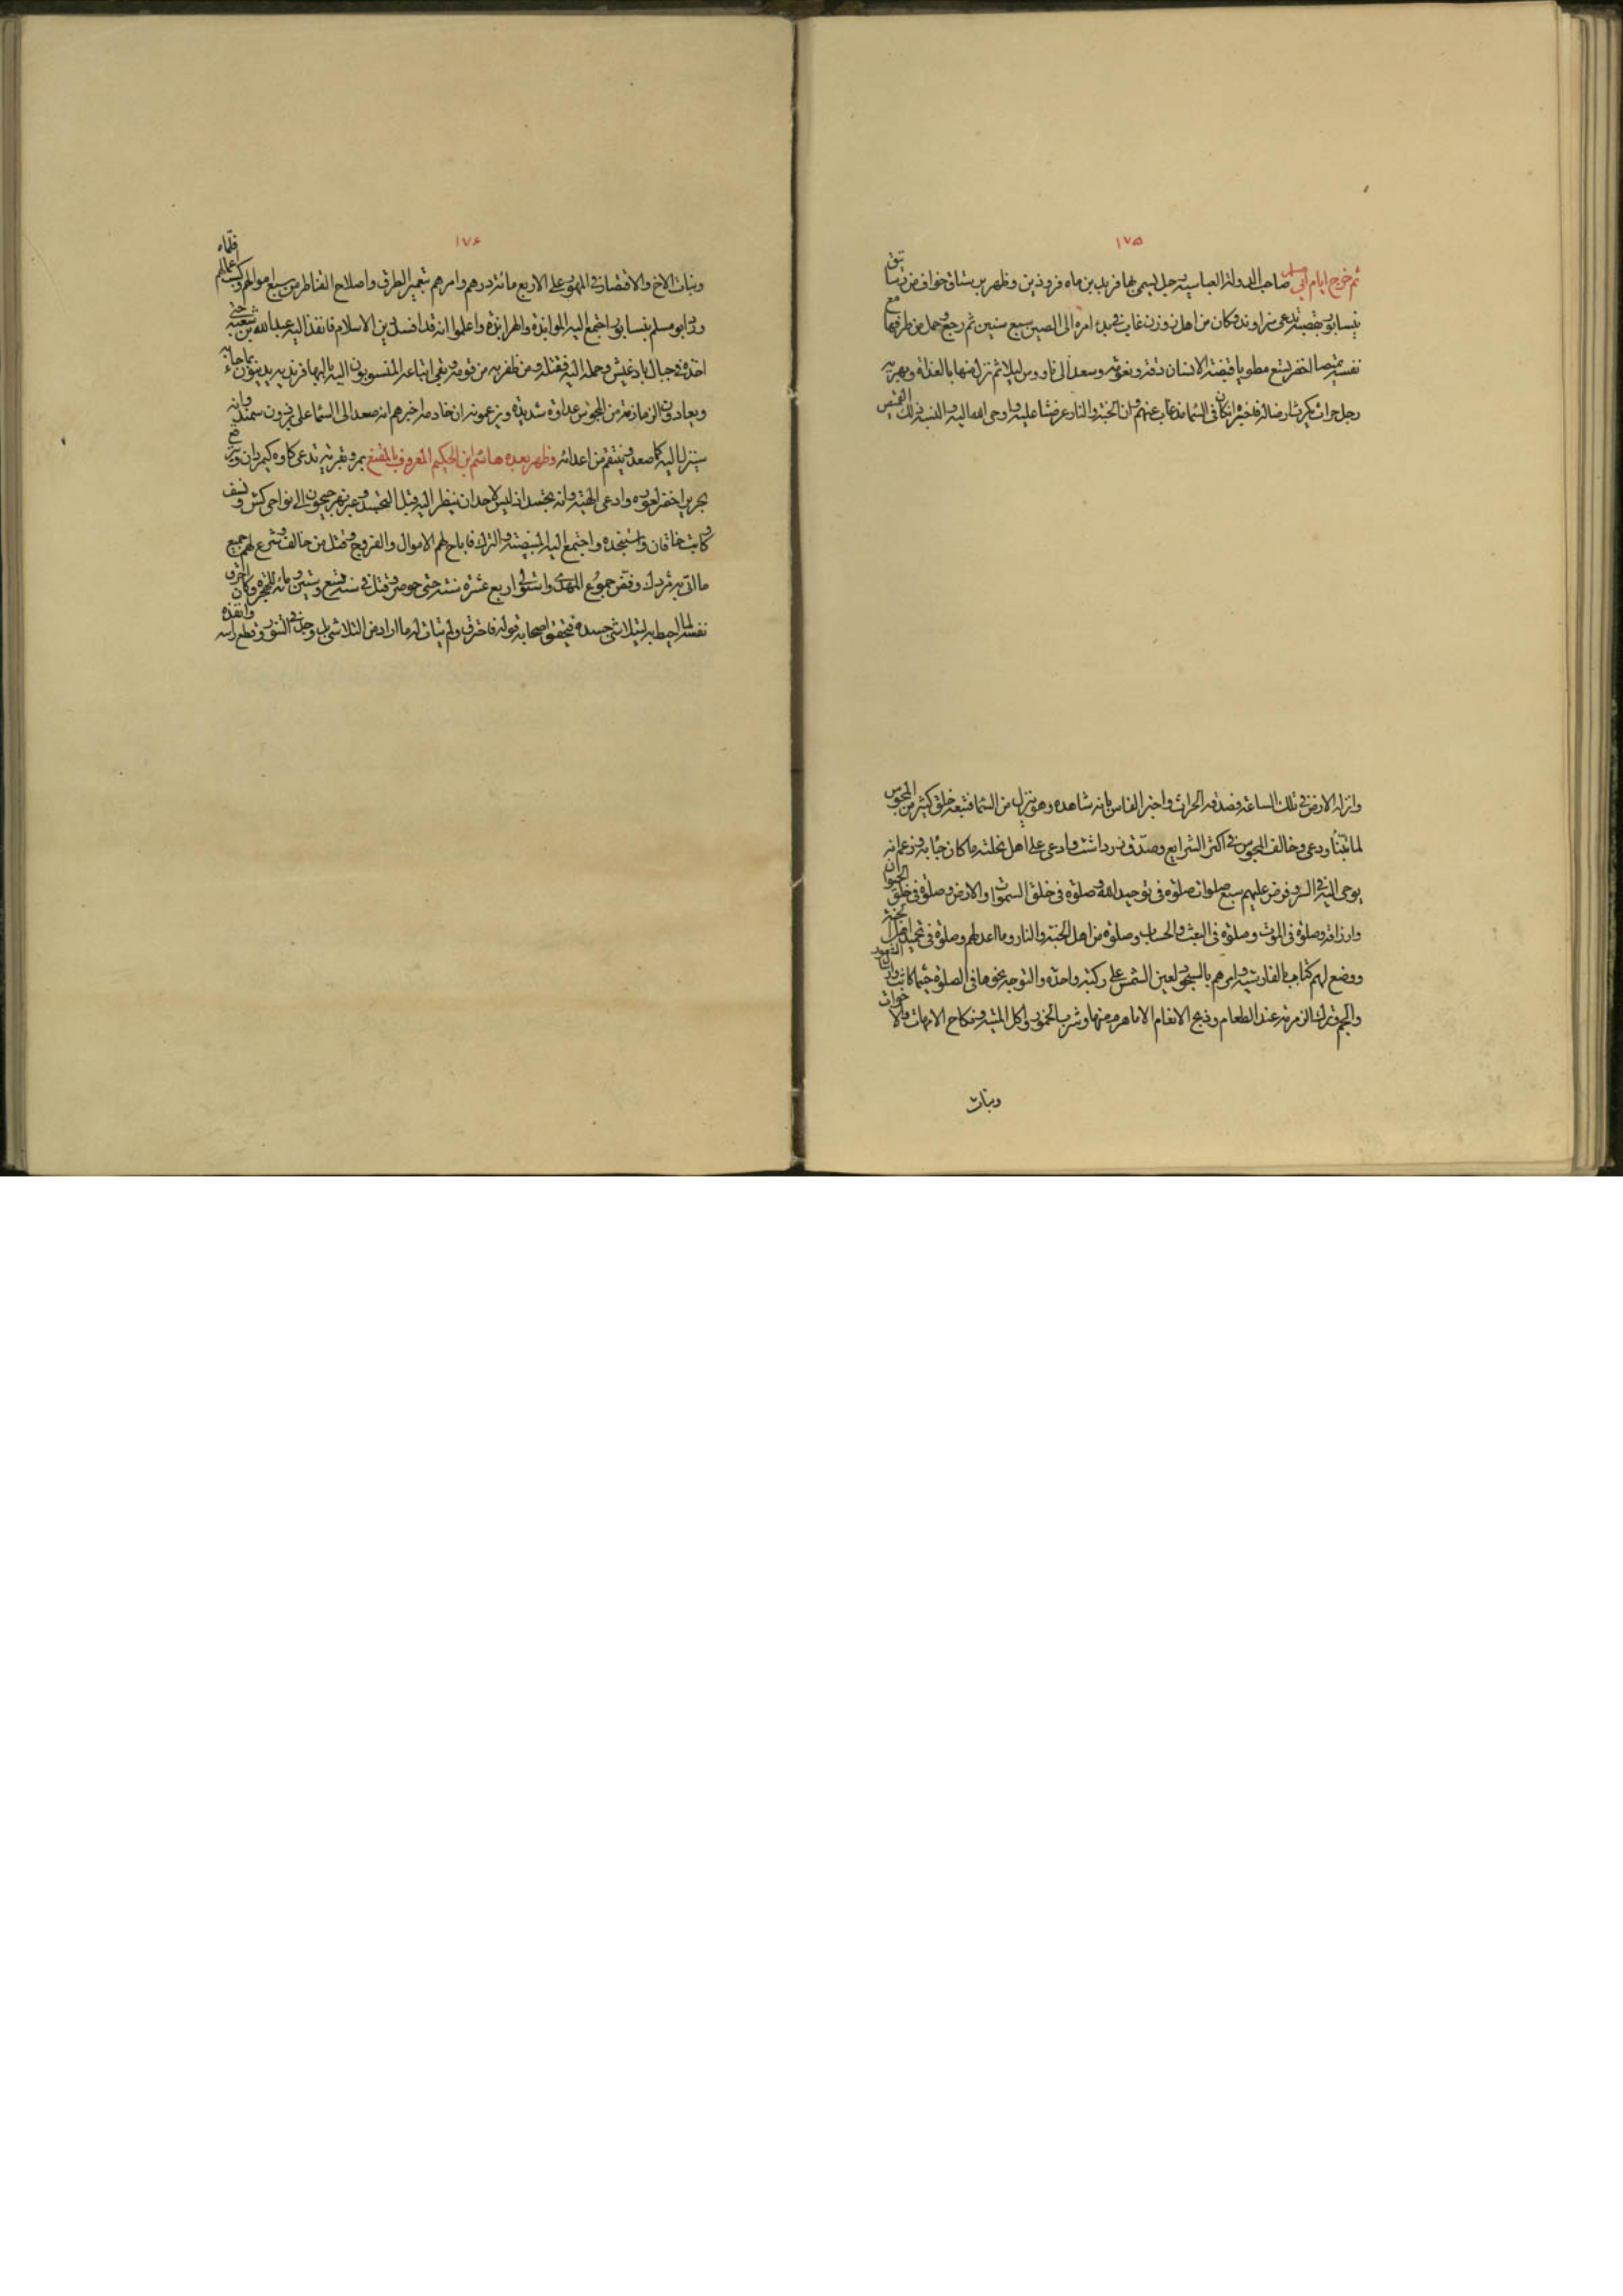 ١٧٥
ثم خرج ايام ابى مسلم صاحب الدولة العباسية رجل يسمى بهافريد بن ماه فروذين وظهر برستاق خواف من رساتيق
نيسابور بقصبة تدعى سراوند وكان من اهل زوزن غاب فى بدء امره الى الصين سبع سنين ثم رجع وحمل من طرفها مع
نفسه قميصا اخضر يسع مطويا قبضة الانسان دقة ونعومة وصعد الى ناووس ليلا ثم نزل منها بالغداة وبصر به
رجل حراث يكرث ارضا له فاخبره انه كان فى السماء مذ غاب عنهم وان الجنة والنار عرضتا عليه واوحى الله اليه والبسه ذلك القميص
وانزله الارض فى تلك الساعة فصدقه الحراث واخبر الناس بانه شاهده وهو ينزل من السماء فتبعه خلق كثير من المجوس
لما تنبأ ودعى وخالف المجوس فى اكثر الشرايع وصدق زرداشت وادعى على اهل نحلته ما كان جاء به وزعم انه
يوحى اليه فى السر وفرض عليهم سبع صلوات صلوة فى توحيد الله وصلوة فى خلق السموات والارض وصلوة فى خلق الحيوان
وارزاقه وصلوة فى الموت وصلوة فى البعث والحساب وصلوة من اهل الجنة والنار وما اعد لهم وصلوة فى تحميد اهل الجنة
ووضع لهم كتابا بالفارسية وامرهم بالسجود لعين الشمس على ركبة واحدة والتوجه نحوها فى الصلوة حيثما كانت وارسال الشعور
والجمم وترك الزمزمة عند الطعام وذبح الانعام الا ما هرم منها وشرب الخمور واكل الميتة ونكاح الامهات والاخوات
وبنات
١٧۶
وبنات الاخ والاقتصار فى المهور على الاربع مائة درهم وامرهم بتعمير الطرق واصلاح القناطر من سبع اموالهم وكسب اعمالهم فلما
ورد ابو مسلم نيسابور اجتمع اليه الموابذة والهرابذة واعلموا انه قد افسد دين الاسلام فانفذ اليه عبد الله بن شعبة حتى
اخذه فى جبال بادغيس وحمله اليه فقتله ومن ظفر به من قومه وبقى اتباعه المنسوبون اليه بالبهافريدية يدينون بما جاء به
ويعادون الزمازمة من المجوس عداوة شديدة ويزعمون ان خادمه اخبرهم انه صعد الى السماء على برذون سمند وانه
سينزل اليه كما صعد وينتقم من اعدائه وظهر بعده هاشم ابن الحكيم المعروف بالمقنع بمرو بقرية تدعى كاوه كيمردان وتبرقع
بحرير اخضر لعوره وادعى الالهية وانه تجسد اذ ليس لاحد ان ينظر اليه قبل التجسد وعبر نهر جيحون الى نواحى كش ونسف
وكاتب خاقان واستنجده واجتمع اليه المبيضة والترك فاباح لهم الاموال والفروج وقتل من خالفه وشرع لهم جميع
ما اتى به مزدك وفض جموع المهدى واستولى اربع عشرة سنة حتى حوصر وقتل فى سنة تسع وستين ومائة للهجرة وكان احرق
نفسه لما احيط به ليتلاشى جسده فيتحقق اصحابه قوله فاحرق ولم يتأت له ما اراد من التلاشى بل وجد فى التنور وقطع راسه وانفذه